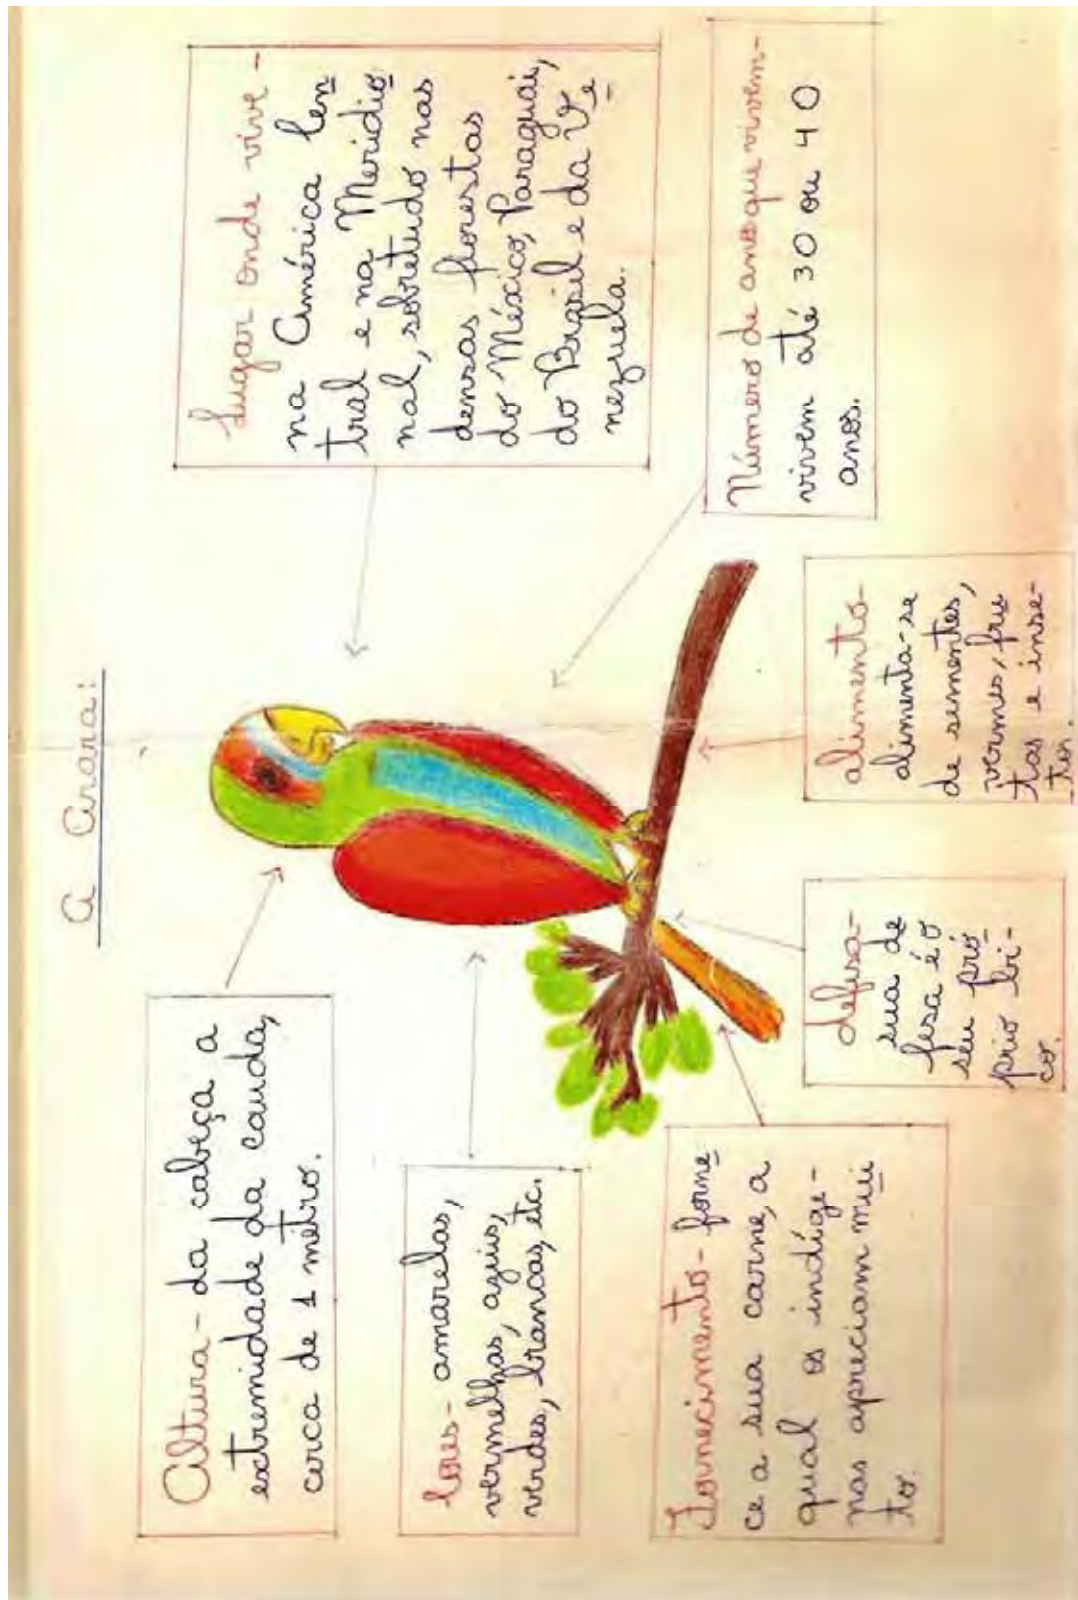 A Arara:
Altura - da cabeça a
extremidade da cauda,
cerca de 1 metro.
Cores - amarelas,
vermelhas, azuis,
verdes, brancas, etc.
Fornecimento - forne
ce a sua carne, a
qual os indíge-
nas apreciam mui
to.
defesa -
sua de
fesa é o
seu pró-
prio bi-
co.
alimento -
alimenta-se
de sementes,
vermes, fru
tas e inse-
tos.
Número de anos que vivem -
vivem até 30 ou 40
anos.
Lugar onde vive -
na América Cen
tral e na Meridio
nal, sobretudo nas
densas florestas
do México, Paraguai,
do Brasil e da Ve
nezuela.